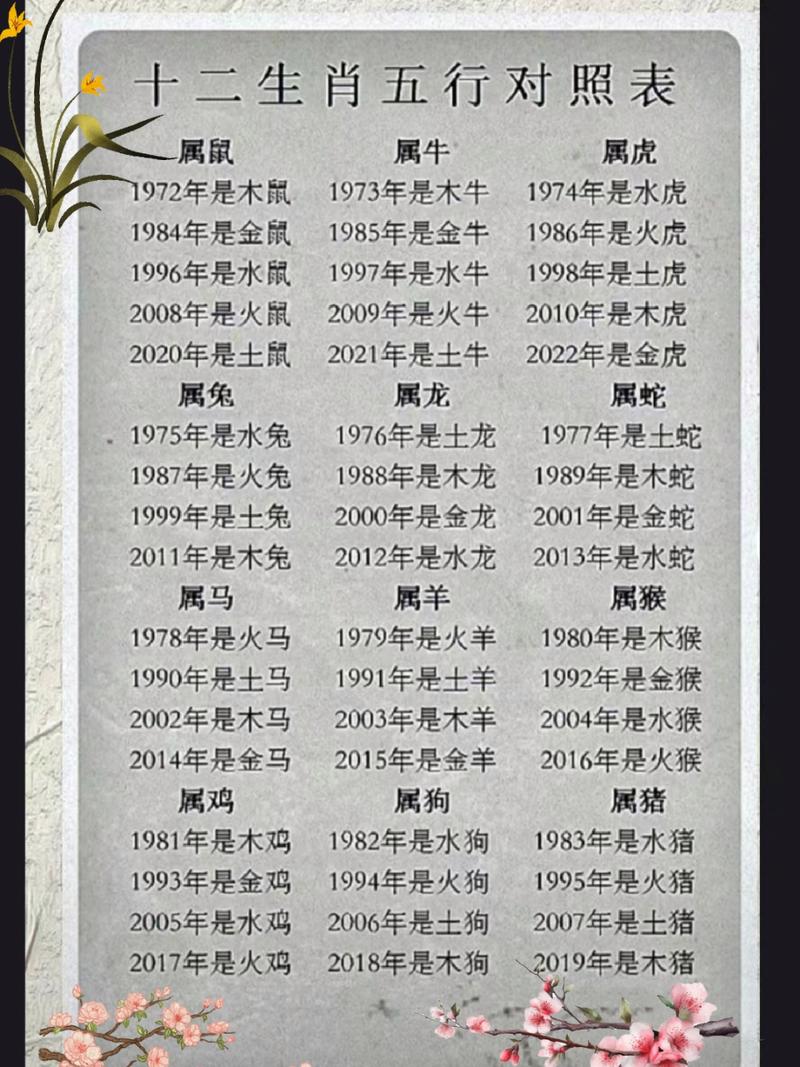 十二生肖五行对照表
属鼠 属牛 属虎
1972年是木鼠 1973年是木牛 1974年是水虎
1984年是金鼠 1985年是金牛 1986年是火虎
1996年是水鼠 1997年是水牛 1998年是土虎
2008年是火鼠 2009年是火牛 2010年是木虎
2020年是土鼠 2021年是土牛 2022年是金虎
属兔 属龙 属蛇
1975年是水兔 1976年是土龙 1977年是土蛇
1987年是火兔 1988年是木龙 1989年是木蛇
1999年是土兔 2000年是金龙 2001年是金蛇
2011年是木兔 2012年是水龙 2013年是水蛇
属马 属羊 属猴
1978年是火马 1979年是火羊 1980年是木猴
1990年是土马 1991年是土羊 1992年是金猴
2002年是木马 2003年是木羊 2004年是水猴
2014年是金马 2015年是金羊 2016年是火猴
属鸡 属狗 属猪
1981年是木鸡 1982年是水狗 1983年是水猪
1993年是金鸡 1994年是火狗 1995年是火猪
2005年是水鸡 2006年是土狗 2007年是土猪
2017年是火鸡 2018年是木狗 2019年是木猪